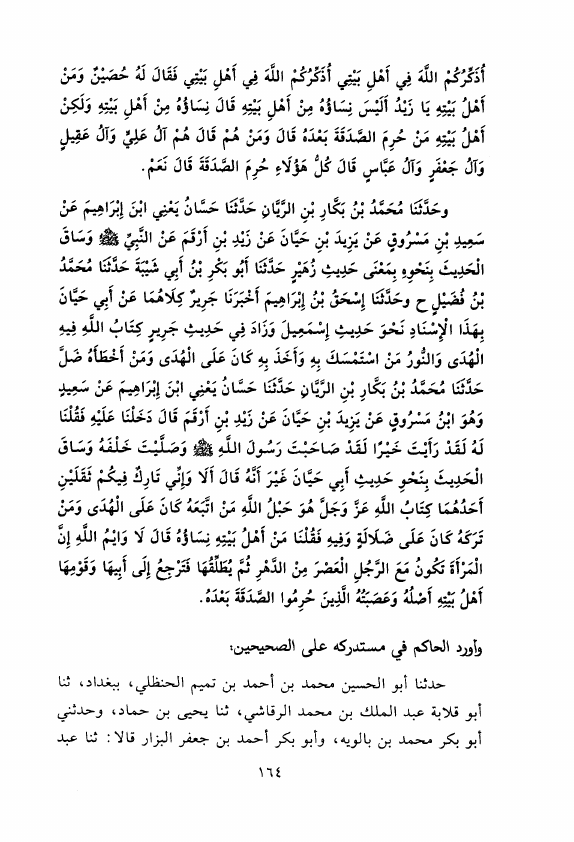 أُذَكِّرُكُمْ اللَّهَ فِي أَهْلِ بَيْتِي أُذَكِّرُكُمْ اللَّهَ فِي أَهْلِ بَيْتِي فَقَالَ لَهُ حُصَيْنٌ وَمَنْ
أَهْلُ بَيْتِهِ يَا زَيْدُ أَلَيْسَ نِسَاؤُهُ مِنْ أَهْلِ بَيْتِهِ قَالَ نِسَاؤُهُ مِنْ أَهْلِ بَيْتِهِ وَلَكِنْ
أَهْلُ بَيْتِهِ مَنْ حُرِمَ الصَّدَقَةَ بَعْدَهُ قَالَ وَمَنْ هُمْ قَالَ هُمْ آلُ عَلِيٍّ وَآلُ عَقِيلٍ
وَآلُ جَعْفَرٍ وَآلُ عَبَّاسٍ قَالَ كُلُّ هَؤُلَاءِ حُرِمَ الصَّدَقَةَ قَالَ نَعَمْ.
وحَدَّثَنَا مُحَمَّدُ بْنُ بَكَّارِ بْنِ الرَّيَّانِ حَدَّثَنَا حَسَّانُ يَعْنِي ابْنَ إِبْرَاهِيمَ عَنْ
سَعِيدِ بْنِ مَسْرُوقٍ عَنْ يَزِيدَ بْنِ حَيَّانَ عَنْ زَيْدِ بْنِ أَرْقَمَ عَنْ النَّبِيِّ ﷺ وَسَاقَ
الْحَدِيثَ بِنَحْوِهِ بِمَعْنَى حَدِيثِ زُهَيْرٍ حَدَّثَنَا أَبُو بَكْرِ بْنُ أَبِي شَيْبَةَ حَدَّثَنَا مُحَمَّدُ
بْنُ فُضَيْلٍ ح وحَدَّثَنَا إِسْحَقُ بْنُ إِبْرَاهِيمَ أَخْبَرَنَا جَرِيرٌ كِلَاهُمَا عَنْ أَبِي حَيَّانَ
بِهَذَا الْإِسْنَادِ نَحْوَ حَدِيثِ إِسْمَعِيلَ وَزَادَ فِي حَدِيثِ جَرِيرٍ كِتَابُ اللَّهِ فِيهِ
الْهُدَى وَالنُّورُ مَنْ اسْتَمْسَكَ بِهِ وَأَخَذَ بِهِ كَانَ عَلَى الْهُدَى وَمَنْ أَخْطَأَهُ ضَلَّ
حَدَّثَنَا مُحَمَّدُ بْنُ بَكَّارِ بْنِ الرَّيَّانِ حَدَّثَنَا حَسَّانُ يَعْنِي ابْنَ إِبْرَاهِيمَ عَنْ سَعِيدٍ
وَهُوَ ابْنُ مَسْرُوقٍ عَنْ يَزِيدَ بْنِ حَيَّانَ عَنْ زَيْدِ بْنِ أَرْقَمَ قَالَ دَخَلْنَا عَلَيْهِ فَقُلْنَا
لَهُ لَقَدْ رَأَيْتَ خَيْرًا لَقَدْ صَاحَبْتَ رَسُولَ اللَّهِ ﷺ وَصَلَّيْتَ خَلْفَهُ وَسَاقَ
الْحَدِيثَ بِنَحْوِ حَدِيثِ أَبِي حَيَّانَ غَيْرَ أَنَّهُ قَالَ أَلَا وَإِنِّي تَارِكٌ فِيكُمْ ثَقَلَيْنِ
أَحَدُهُمَا كِتَابُ اللَّهِ عَزَّ وَجَلَّ هُوَ حَبْلُ اللَّهِ مَنْ اتَّبَعَهُ كَانَ عَلَى الْهُدَى وَمَنْ
تَرَكَهُ كَانَ عَلَى ضَلَالَةٍ وَفِيهِ فَقُلْنَا مَنْ أَهْلُ بَيْتِهِ نِسَاؤُهُ قَالَ لَا وَايْمُ اللَّهِ إِنَّ
الْمَرْأَةَ تَكُونُ مَعَ الرَّجُلِ الْعَصْرَ مِنْ الدَّهْرِ ثُمَّ يُطَلِّقُهَا فَتَرْجِعُ إِلَى أَبِيهَا وَقَوْمِهَا
أَهْلُ بَيْتِهِ أَصْلُهُ وَعَصَبَتُهُ الَّذِينَ حُرِمُوا الصَّدَقَةَ بَعْدَهُ.
وأورد الحاكم في مستدركه على الصحيحين؛
حدثنا أبو الحسين محمد بن أحمد بن تميم الحنظلي، ببغداد، ثنا
أبو قلابة عبد الملك بن محمد الرقاشي، ثنا يحيى بن حماد، وحدثني
أبو بكر محمد بن بالويه، وأبو بكر أحمد بن جعفر البزار قالا: ثنا عبد
١٦٤